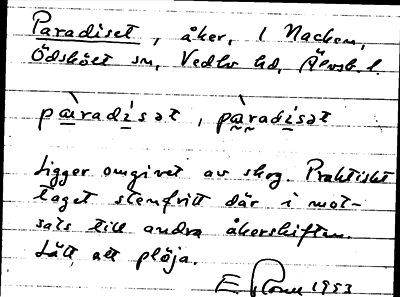 Paradiset, åker, i Nacken,
Ödsköłt sn, Vedbo hd, Älvsb. l.
pàradisət, pàradisət
Ligger omgivet av skog. Praktiskt
taget stenfritt där i mot-
sats till andra åkerskiften.
Lätt att plöja.
1953